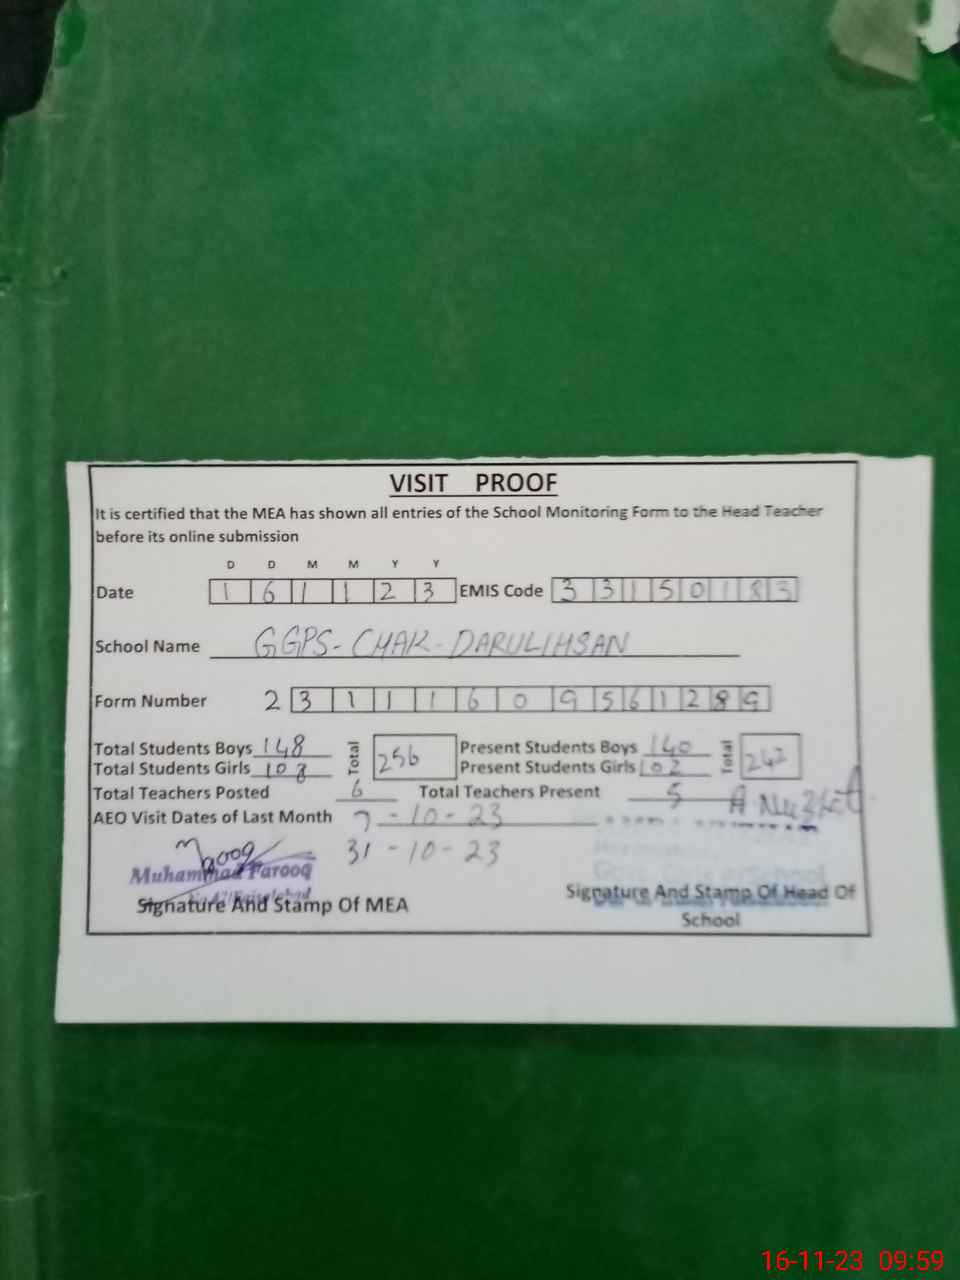 VISIT PROOF
It is certified that the MEA has shown all entries of the School Monitoring Form to the Head Teacher
before its online submission
D D M M Y Y
Date 1 6 1 1 2 3 EMIS Code 3 3 1 5 0 1 8 3
School Name GGPS-CHAK-DARULIHSAN
Form Number 2 3 1 1 1 6 0 9 5 6 1 2 8 9
Total Students Boys 148 Total 256 Present Students Boys 140 Total 242
Total Students Girls 108 Present Students Girls 102
Total Teachers Posted 6 Total Teachers Present 5
AEO Visit Dates of Last Month 7-10-23
31-10-23
Muhammad Farooq
Signature And Stamp Of MEA
Signature And Stamp Of Head Of
School
16-11-23 09:59